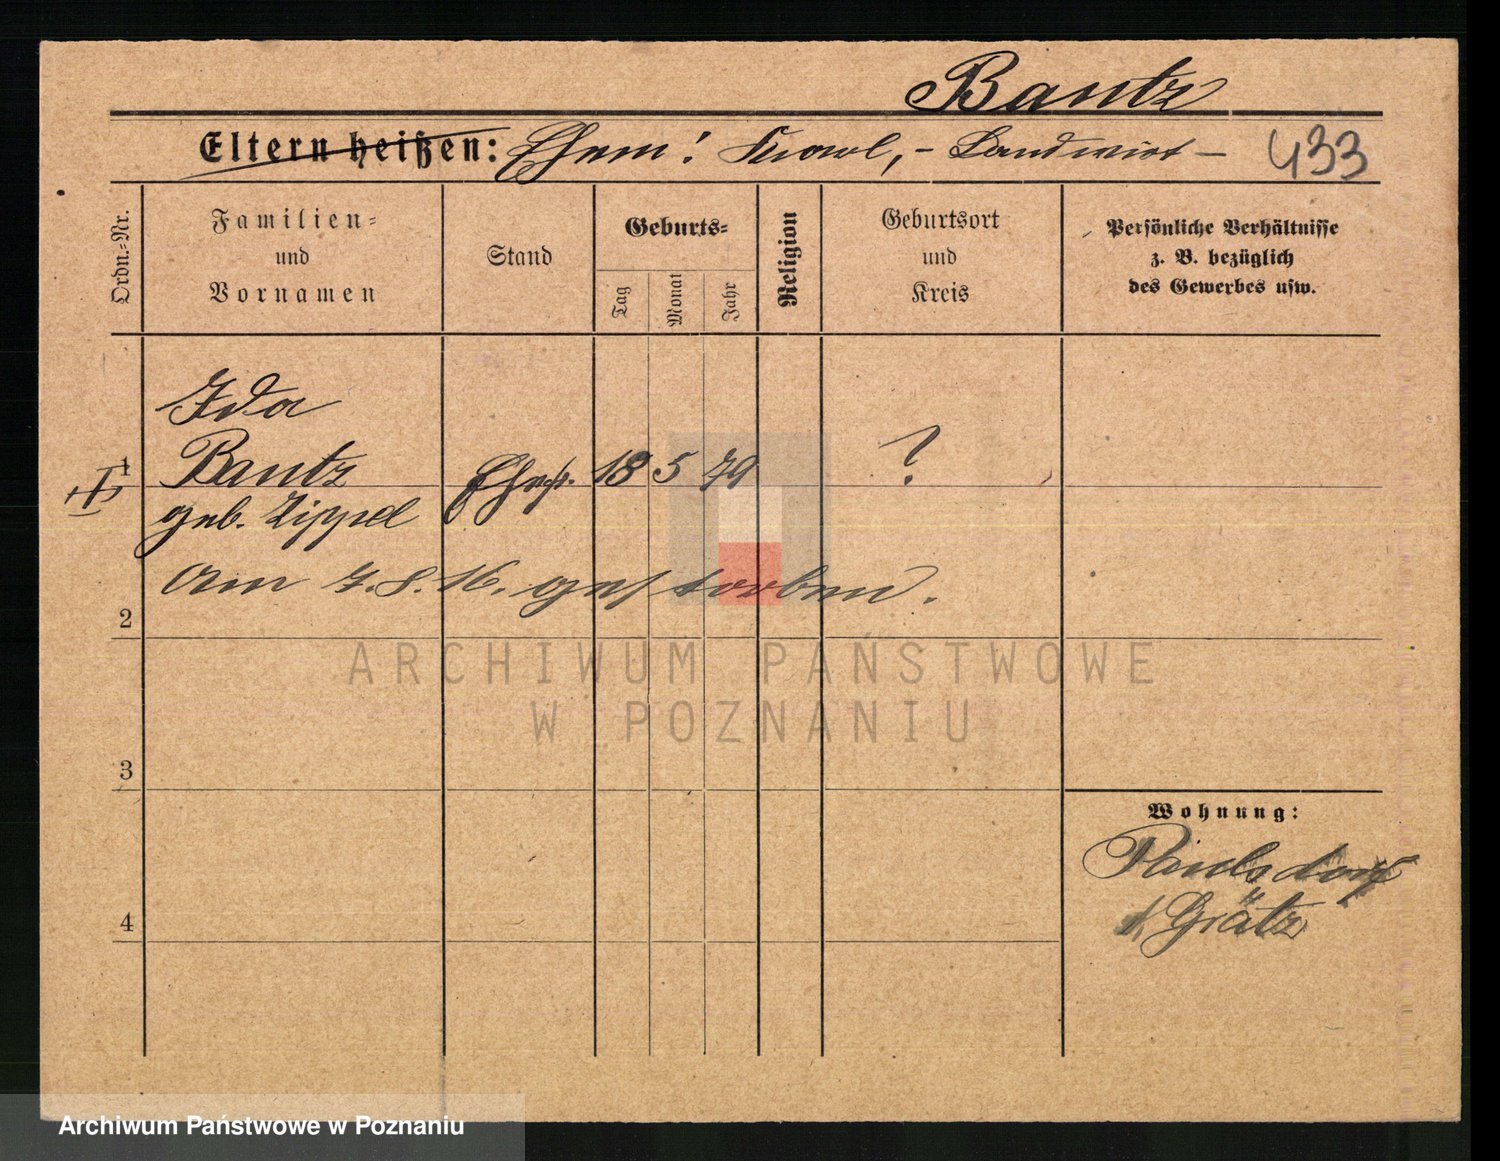 Bantz
Eltern heißen: Ehem: Karl, - Landwirt - 433
Ordn.-Nr.
Familien-
und
Vornamen
Stand
Geburts-
Tag
Monat
Jahr
Religion
Geburtsort
und
Kreis
Persönliche Verhältnisse
z. B. bezüglich
des Gewerbes usw.
Ida
1 Bantz 18 5 79 ?
geb. Zippel
am 7.8.16. gestorben.
2
ARCHIWUM PAŃSTWOWE
W POZNANIU
3
Wohnung:
Paulsdorf
Grätz
4
Archiwum Państwowe w Poznaniu